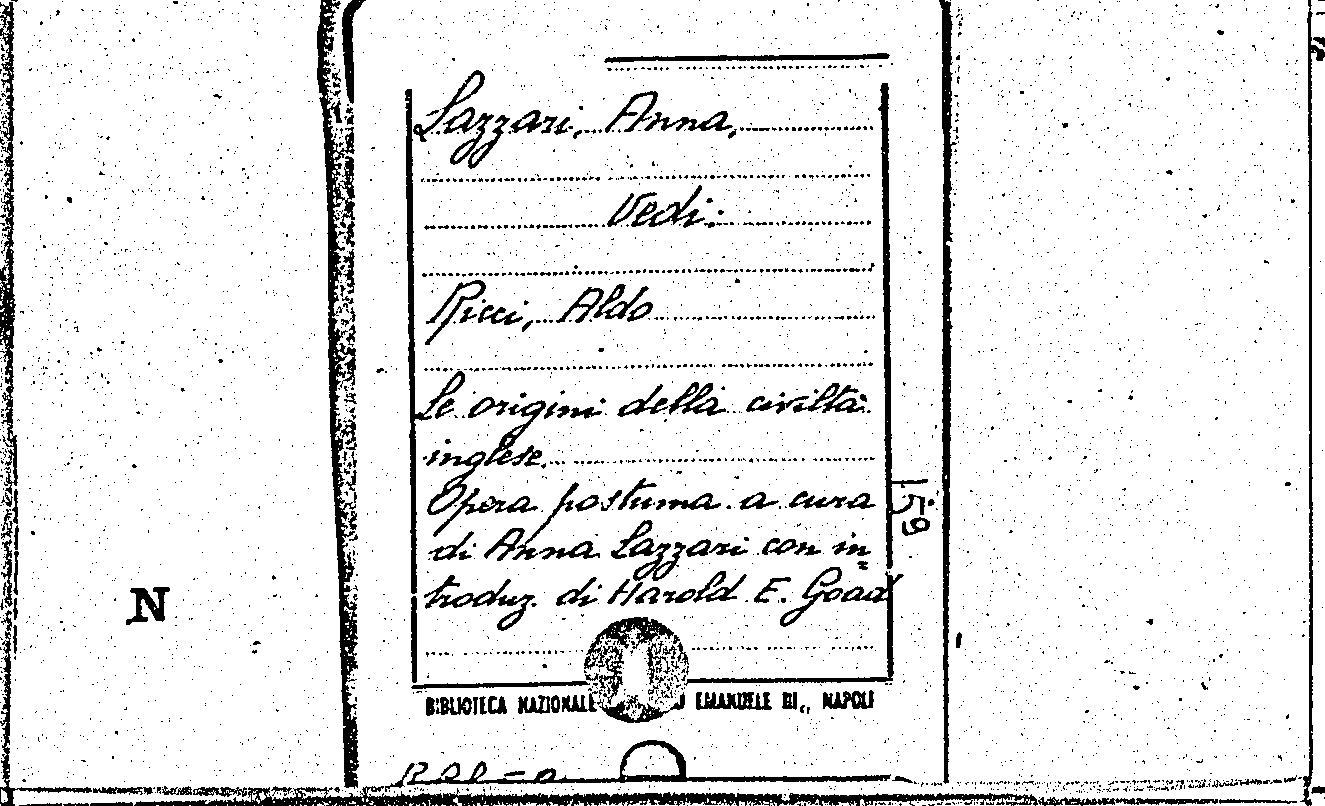 Lazzari, Anna,
Vedi:
Ricci, Aldo
Le origini della civiltà
inglese.
Opera postuma a cura
di Anna Lazzari con in=
troduz. di Harold E. Goad
159
N
BIBLIOTECA NAZIONALE EMANUELE III., NAPOLI